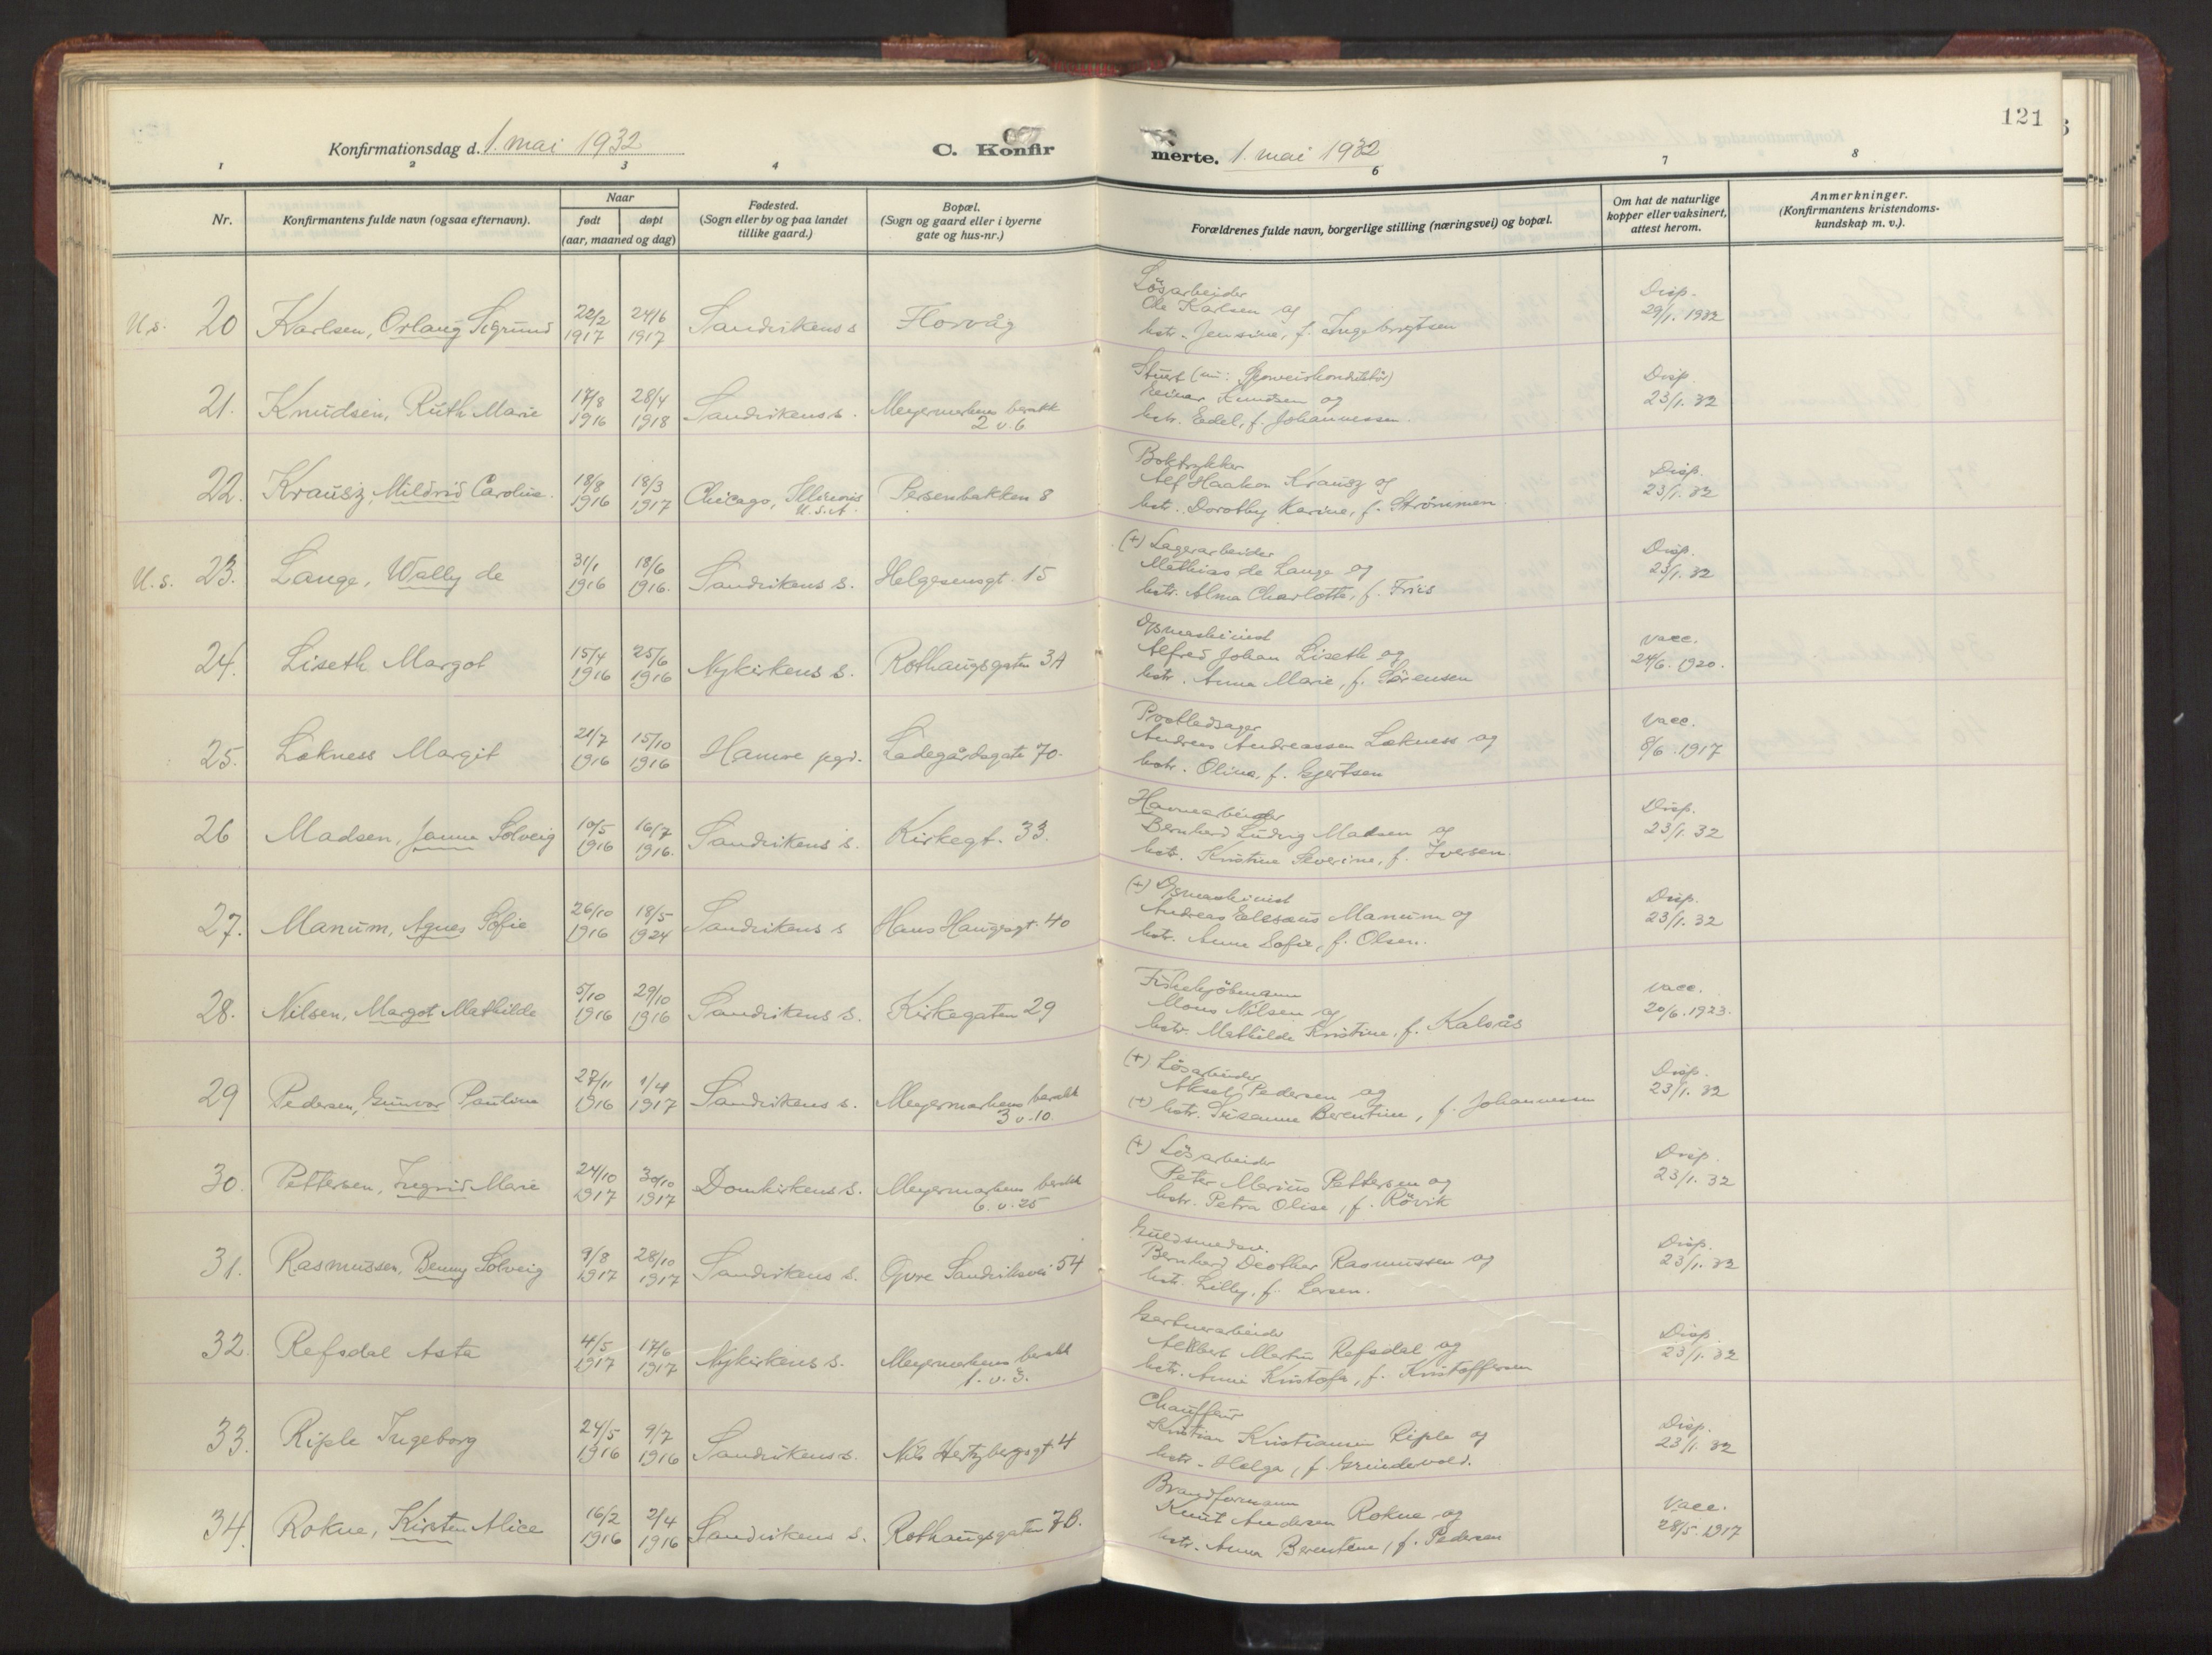 121
Konfirmationsdag d. 1. mai 1932
C. Konfirmerte. 1. mai 1932
1 2 3 4 6 7 8
Nr.
Konfirmantens fulde navn (ogsaa efternavn).
Naar
født døpt
(aar, maaned og dag)
Fødested.
(Sogn eller by og paa landet
tillike gaard.)
Bopæl.
(Sogn og gaard eller i byerne
gate og hus-nr.)
Forældrenes fulde navn, borgerlige stilling (næringsvei) og bopæl.
Om hat de naturlige
kopper eller vaksinert,
attest herom.
Anmerkninger.
(Konfirmantens kristendoms-
kundskap m. v.).
U.s. 20 Karlsen, Orlaug Sigrund 22/2 1917 24/6 1917 Sandvikens s Florvåg
Løsarbeider
Ole Karlsen og
hstr. Jensine, f. Ingebrigtsen
Disp.
29/1. 1932
21. Knudsen, Ruth Marie 17/8 1916 28/4 1918 Sandvikens s. Meyermarkens barakk
2 v. 6
Einar Knudsen og
hstr. Edel, f. Johannessen.
Disp.
23/1. 32
22. Krausz, Mildrid Caroline. 18/8 1916 18/3 1917 Chicago, Illinois
U.S.A. Persenbakken 8
Boktrykker
Alf Haakon Krausz og
hstr. Dorothy Karine, f. Strømmen
Disp.
23/1. 32
U.s. 23. Lange, Wally de 31/1 1916 18/6 1916. Sandvikens s. Helgesensgt. 15
(+) Lagerarbeider
Mathias de Lange og
hstr. Alma Charlotte, f. Friis
Disp.
23/1. 32
24. Liseth Margot 15/4 1916 25/6 1916 Nykirkens s. Rothaugsgaten 3A
Dpsmaskinist
Alfred Johan Liseth og
hstr. Anna Marie, f. Sørensen
Vacc.
24/6. 1920.
25. Løkness Margit 21/7 1916 15/10 1916 Hamre pgd. Ladegårdsgate 70.
Postledsager
Andreas Andreassen Løkness og
hstr. Olina, f. Gjertsen
Vacc.
8/6. 1917
26 Madsen, Janna Solveig 10/5 1916 16/7 1916. Sandvikens s. Kirkegt. 33.
Havnearbeider
Bernhard Ludvig Madsen og
hstr. Kristine Severine, f. Iversen.
Disp.
23/1. 32
27. Manum, Agnes Sofie 26/10 1916 18/5 1924 Sandvikens s Hans Haugesgt. 40
(+) Dpsmaskinist
Andreas Elesæus Manum og
hstr. Anna Sofie, f. Olsen.
Disp.
23/1. 32
28. Nilsen, Margot Mathilde 5/10 1916 29/10 1916 Sandvikens s. Kirkegaten 29
Fiskekjøbmann
Mons Nilsen og
hstr. Mathilde Kristine, f. Kalsås
Vacc.
20/6. 1923.
29 Pedersen, Gunvor Pauline 27/11 1916 1/4 1917 Sandvikens s. Meyermarkens barakk
3 v. 10.
(+) Løsarbeider
Aksel Pedersen og
(+) hstr. Susanne Berentine, f. Johannessen
Disp.
23/1. 32
30. Pettersen, Ingrid Marie 24/10 1917 30/10 1917 Domkirkens s. Meyermarkens barakk
6. v. 25
(+) Løsarbeider
Peter Marius Pettersen og
hstr. Petra Olise, f. Røvik
Disp.
23/1. 32
31. Rasmussen, Benny Solveig 9/8 1917 28/10 1917 Sandvikens s. Øvre Sandviksvei 54
Guldsmedsv.
Bernhard Deothar Rasmussen og
hstr. Lilly, f. Larsen.
Disp.
23/1. 32
32. Refsdal Asta 4/5 1917 17/6 1917 Nykirkens s. Meyermarkens barakk
1. v. 3.
Gartnerarbeider
Albert Martin Refsdal og
hstr. Anna Kristofa, f. Kristoffersen
Disp
23/1. 32
33. Riple Ingeborg 24/5 1916 9/7 1916 Sandvikens s. Nils Hertzbergsgt. 4
Chauffeur
Kristian Kristiansen Riple og
hstr. Helga, f. Grindevold.
Disp.
23/1. 32
34. Rokne, Kirsten Alice 16/2 1916 2/4 1916 Sandvikens s. Rothaugsgaten 7B.
Brandformann
Knut Andersen Rokne og
hstr. Anna Berentine, f. Pedersen
Vacc.
28/5. 1917